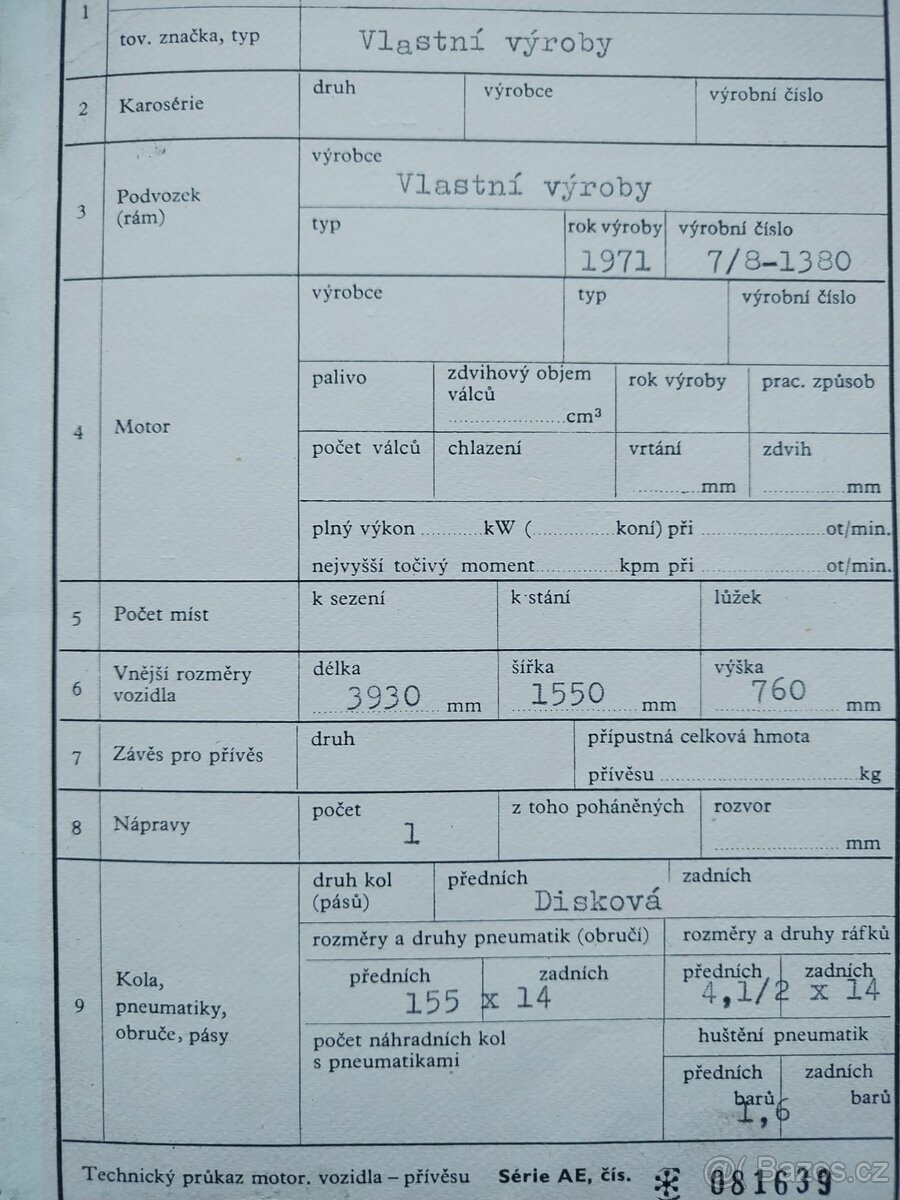 1
tov. značka, typ Vlastní výroby
2 Karosérie druh výrobce výrobní číslo
výrobce
Vlastní výroby
3 Podvozek
(rám)
typ rok výroby výrobní číslo
1971 7/8-1380
výrobce typ výrobní číslo
4 Motor
palivo zdvihový objem
válců
cm³ rok výroby prac. způsob
počet válců chlazení vrtání zdvih
mm mm
plný výkon kW ( koní) při ot/min.
nejvyšší točivý moment kpm při ot/min.
5 Počet míst k sezení k stání lůžek
6 Vnější rozměry
vozidla
délka šířka výška
3930 mm 1550 mm 760 mm
7 Závěs pro přívěs druh přípustná celková hmota
přívěsu kg
8 Nápravy počet z toho poháněných rozvor
1 mm
9 Kola,
pneumatiky,
obruče, pásy
druh kol
(pásů) předních zadních
Disková
rozměry a druhy pneumatik (obručí) rozměry a druhy ráfků
předních zadních předních zadních
155 x 14 4,1/2 x 14
počet náhradních kol
s pneumatikami
huštění pneumatik
předních zadních
barů barů
1,6
Technický průkaz motor. vozidla – přívěsu Série AE, čís. 081639
@ Bazos.cz